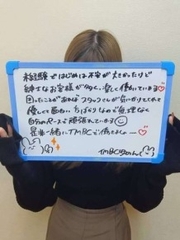 未経験ではじめは不安が大きかったけど
紳士なお客様が多く、楽しく働いています♡
困ったことがあればスタッフさんが気にかけてくれて
優しくて面白い人ばかりなので無理なく
自分のペースで頑張れています☺
是非一緒にTMBCで働きましょー♡
TMBC